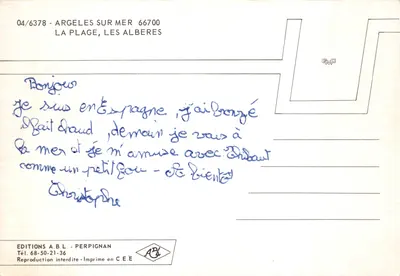 04/6378 - ARGELES SUR MER 66700
LA PLAGE, LES ALBERES
Bonjour
je suis en Espagne, j'ai bronzé
il fait chaud, demain je vais à
la mer et je m'amuse avec Thibaut
comme un petit fou - A Bientôt
Christophe
EDITIONS A.B.L. - PERPIGNAN
Tél. 68-50-21-36
Reproduction interdite - Imprimé en C E E
ABL